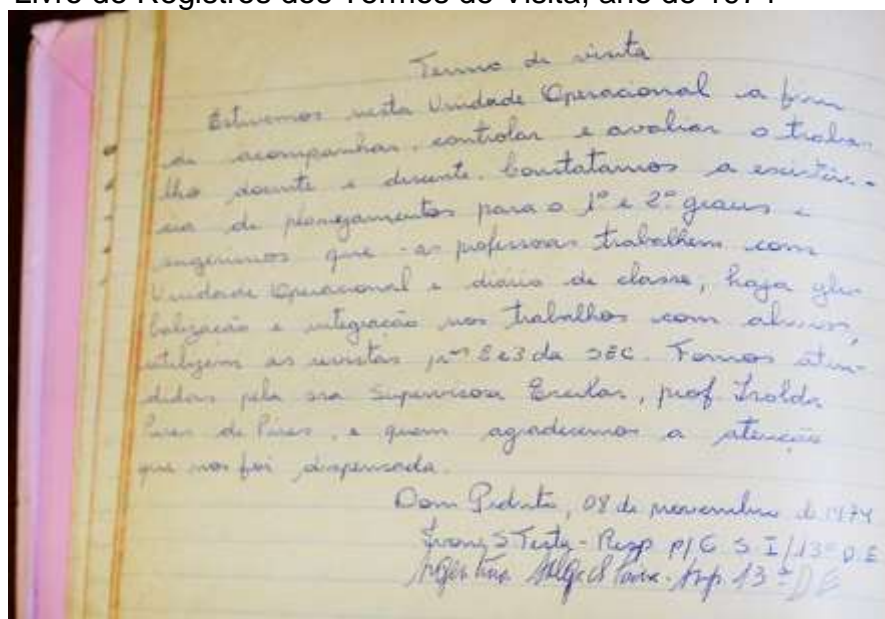 Livro de Registros dos Termos de Visita, ano de 1974
Termo de visita
Estivemos nesta Unidade Operacional a fim
de acompanhar, controlar e avaliar o traba-
lho docente e discente. Constatamos a existên-
cia de planejamentos para o 1º e 2º graus e
sugerimos que as professoras trabalhem com
Unidade Operacional e diário de classe, haja glo-
balização e integração nos trabalhos com alunos,
utilizem as revistas nºs 2 e 3 da SEC. Fomos aten-
didos pela sra Supervisora Escolar, prof Isolda
Pires de Pires, a quem agradecemos a atenção
que nos foi dispensada.
Dom Pedrito, 08 de novembro de 1974
Testa - Resp p/G S I/13ª D.E
13ª DE